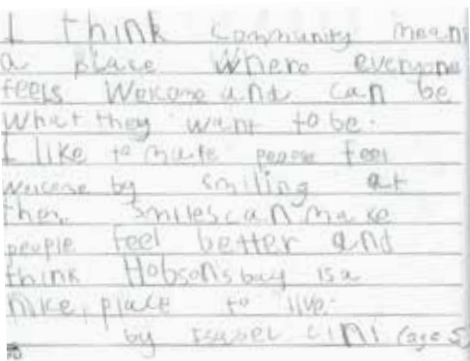 I think community means
a place where everyone
feels welcome and can be
what they want to be.
I like to make people feel
welcome by smiling at
them smiles can make
people feel better and
think Hobsons bay is a
nice, place to live.
by Isabel (age 5)